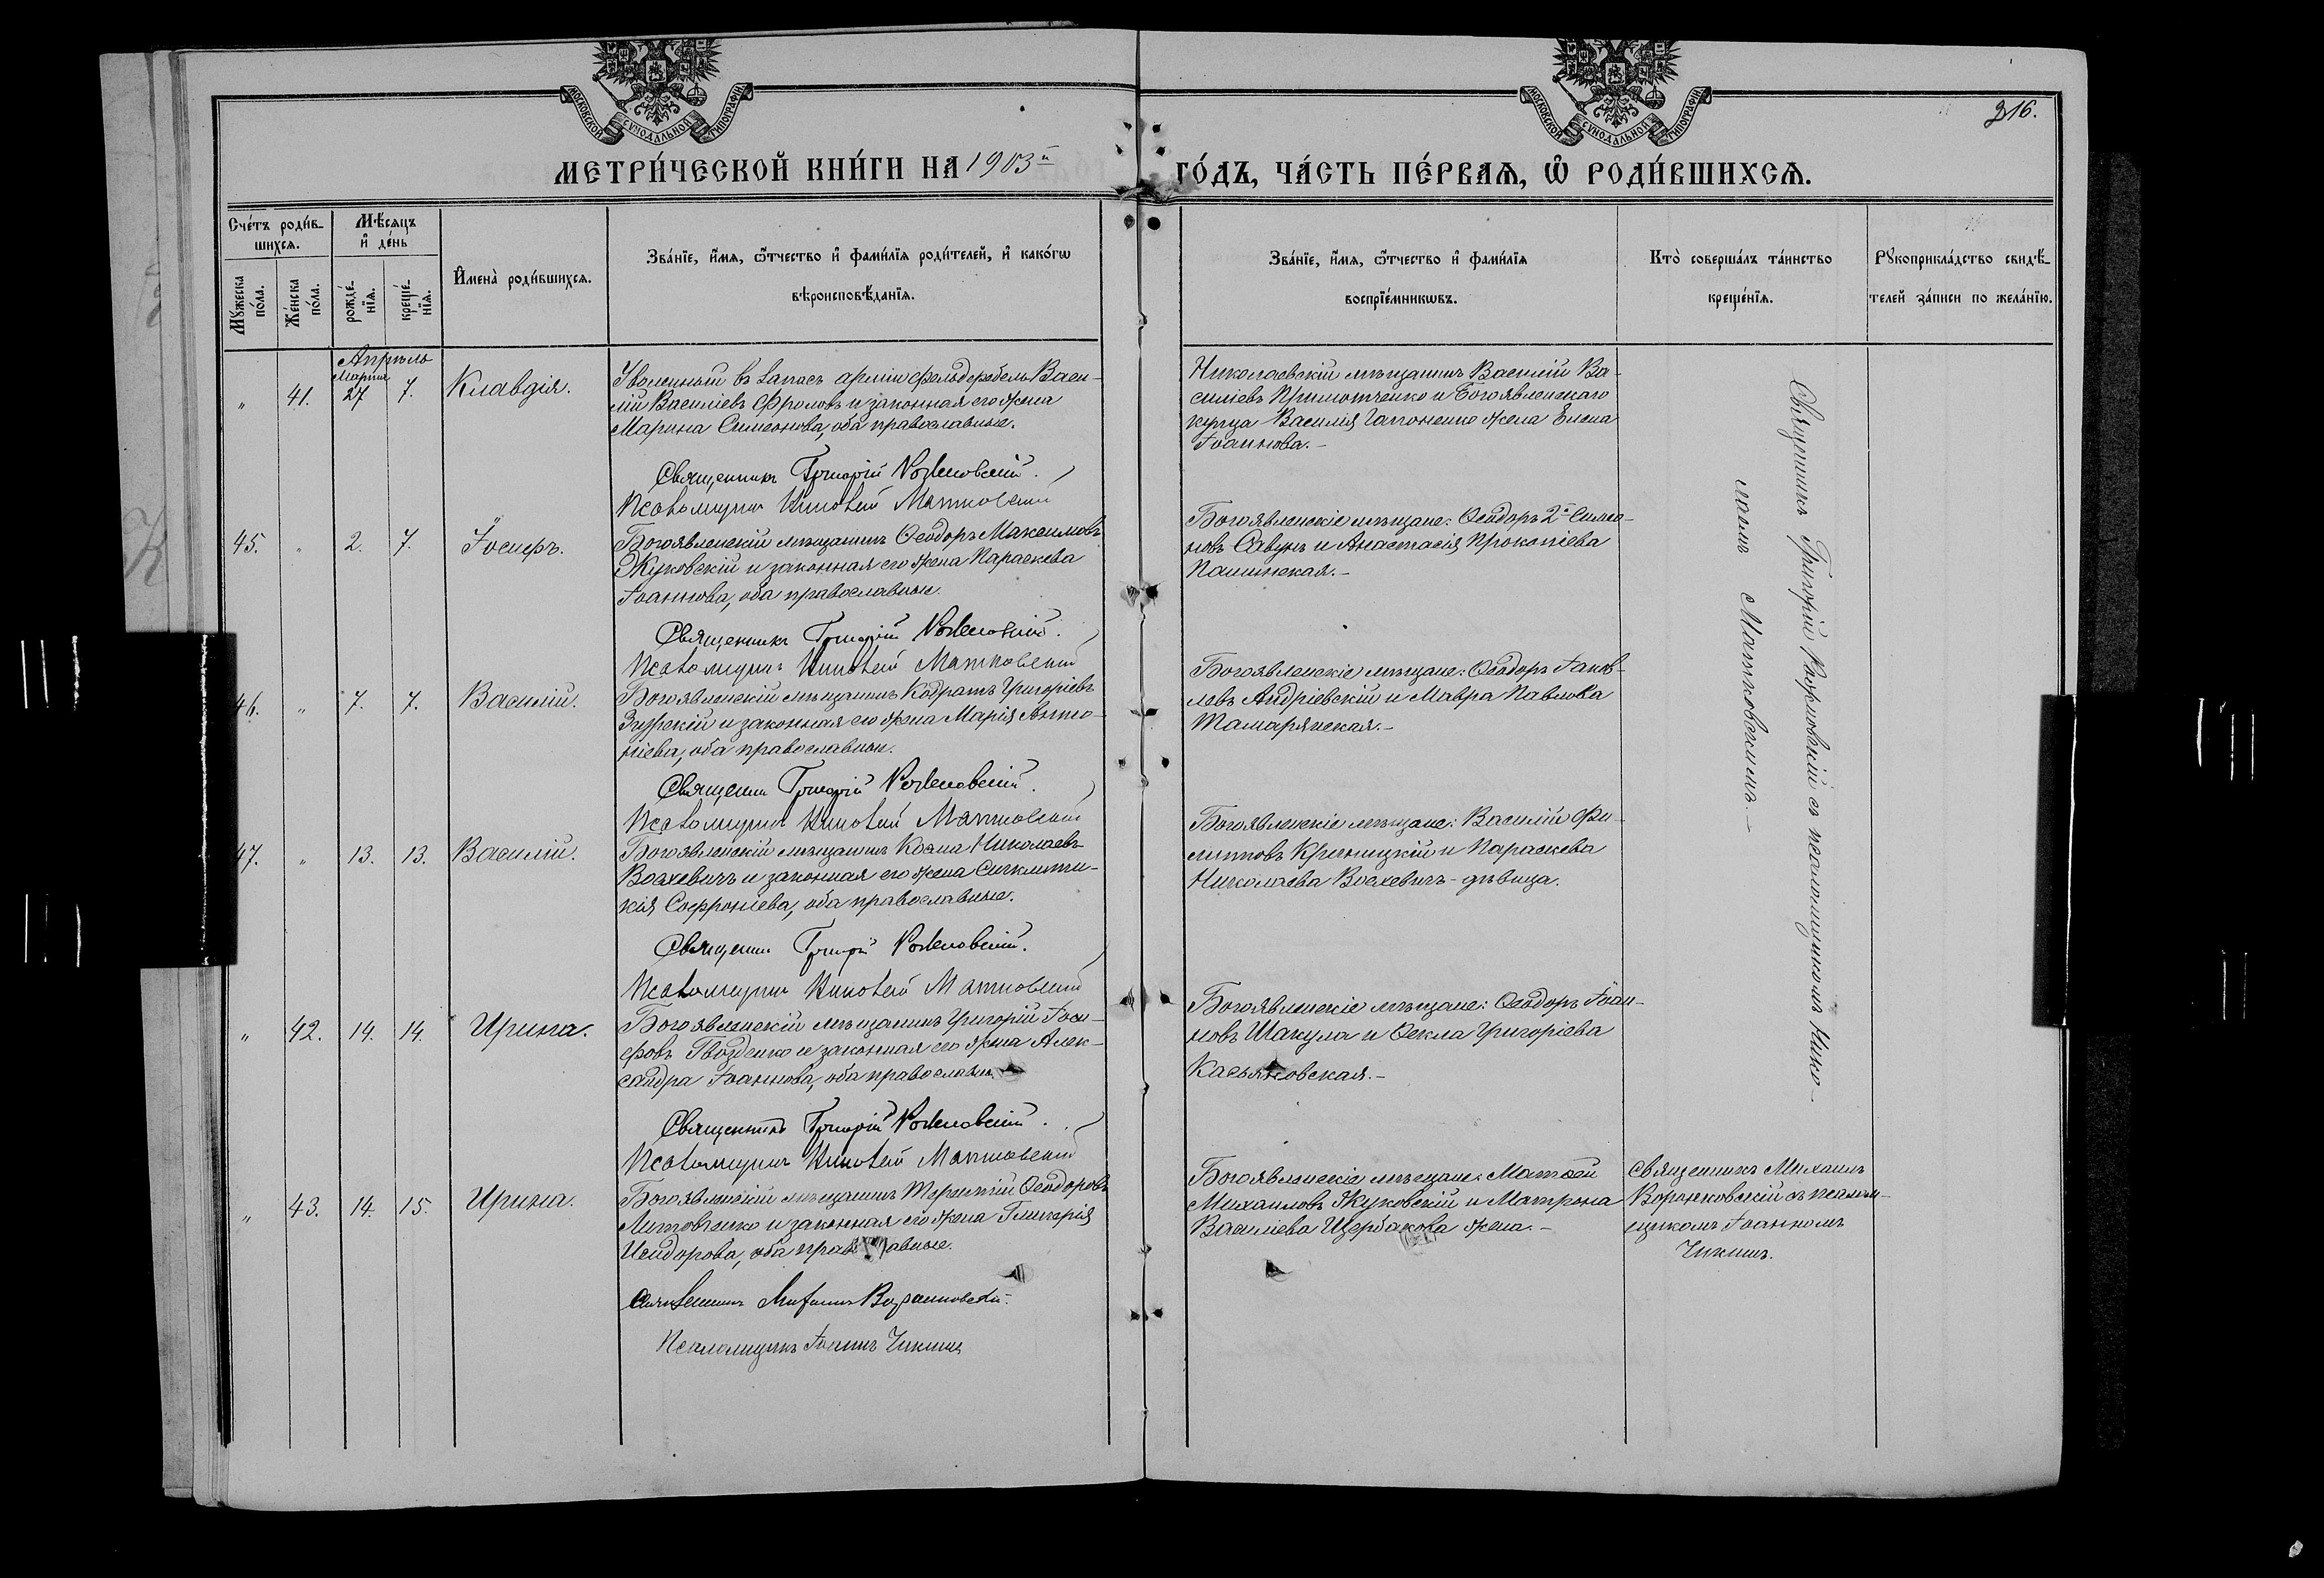 МОСКОВСКОЙ СУНОДАЛЬНОЙ ТИПОГРАФІИ
МОСКОВСКОЙ СУНОДАЛЬНОЙ ТИПОГРАФІИ
216.
МЕТРИ́ЧЕСКОЙ КНИ́ГИ НА 1903й ГО́ДЪ, ЧА́СТЬ ПЕ́РВАѦ, Ѡ РОДИ́ВШИХСѦ.
Сче́тъ роди́в-
шихся.
Мѣ́сяцъ
и де́нь
Мꙋ́жеска
по́ла.
Же́нска
по́ла.
рожде́-
нїя.
креще́-
нїя.
Имена̀ роди́вшихся.
Зва́нїе, и́мя, ѻ́тчество и фами́лїя роди́телей, и како́гѡ
вѣроисповѣ́данїя.
Зва́нїе, и́мя, ѻ́тчество и фами́лїя
воспрїе́мникѡвъ.
Кто̀ соверша́лъ та́инство
креще́нїя.
Рꙋкоприкла́дство свидѣ́-
телей за́писи по жела́нїю.
Апрѣль
Марта
" 41. 27 7. Клавдія.
Уволенный въ запасъ арміи фельдфебель Васи-
лій Василіевъ Фроловъ и законная его жена
Марина Симеонова, оба православные.
Священникъ Григорій
Псаломщикъ Николай Матковскій
Николаевскій мѣщанинъ Василій Ва-
силіевъ и Богоявленскаго
купца Василія Гапоненко жена Елена
Іоаннова.-
45. " 2. 7. Іосифъ.
Богоявленскій мѣщанинъ Ѳеодоръ Максимовъ
Жуковскій и законная его жена Параскева
Іоаннова, оба православные.
Священникъ Григорій
Псаломщикъ Николай Матковскій
Богоявленскіе мѣщане: Ѳеодоръ 2й Симео-
новъ Савунъ и Анастасія Прокопіева
46. " 7. 7. Василій.
Богоявленскій мѣщанинъ Кодратъ Григоріевъ
Загурскій и законная его жена Марія Анто-
ніева, оба православные.
Священникъ Григорій
Псаломщикъ Николай Матковскій
Богоявленскіе мѣщане: Ѳеодоръ Іаков-
левъ Андріевскій и Мавра Павлова
Тамарянская.-
47. " 13. 13. Василій.
Богоявленскій мѣщанинъ Косма Николаевъ
и законная его жена Синклити-
кія Софроніева, оба православные.
Священникъ Григорій
Псаломщикъ Николай Матковскій
Богоявленскіе мѣщане: Василій Фи-
липповъ Криницкій и Параскева
Николаева - дѣвица.
" 42. 14. 14. Ирина.
Богоявленскій мѣщанинъ Григорій Іоси-
фовъ Гвозденко и законная его жена Алек-
сандра Іоаннова, оба православн.
Священникъ Григорій
Псаломщикъ Николай Матковскій
Богоявленскіе мѣщане: Ѳеодоръ Іоан-
новъ Шакула и Ѳекла Григоріева
Касьяновская.-
Священникъ Григорій съ псаломщикомъ Нико-
лаемъ Матковскимъ.-
" 43. 14. 15. Ирина.
Богоявленскій мѣщанинъ Терентій Ѳеодоровъ
Литовченко и законная его жена Гликерія
Исидорова, оба православные.
Священникъ Михаилъ Воронковскій.
Псаломщикъ Іоаннъ Чикишъ
Богоявленскіе мѣщане: Матѳей
Михаиловъ Жуковскій и Матрона
Василіева Щербакова жена.-
Священникъ Михаилъ
Воронковскій съ псалом-
щикомъ Іоанномъ